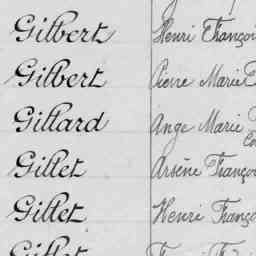 Gilbert Henri Françoi
Gilbert Pierre Marie
Gillard Ange Marie
Gillet Arsène Françoi
Gillet Henri Franço
Gillet